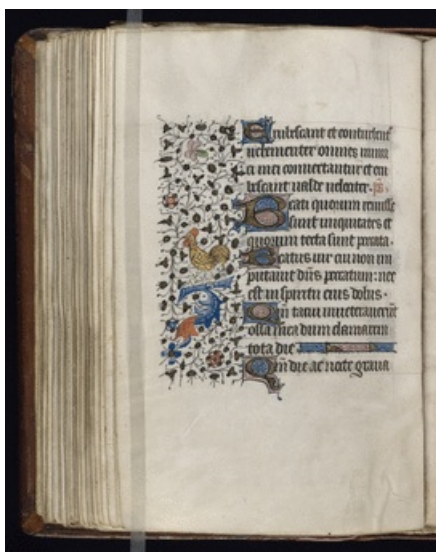 Erubescant et conturbent᷑
uehementer omnes inimi
ci mei conuertantur et eru
bescant ualde uelociter. ps̄
Beati quorum remisse
sunt iniquitates et
quorum tecta sunt peccata.
Beatus uir cui non im
putauit dn̄s peccatum: nec
est in spiritu eius dolus.
Qm̄ tacui inueterauerūt
ossa mea dum clamarem
tota die
Qm̄ die ac nocte graua